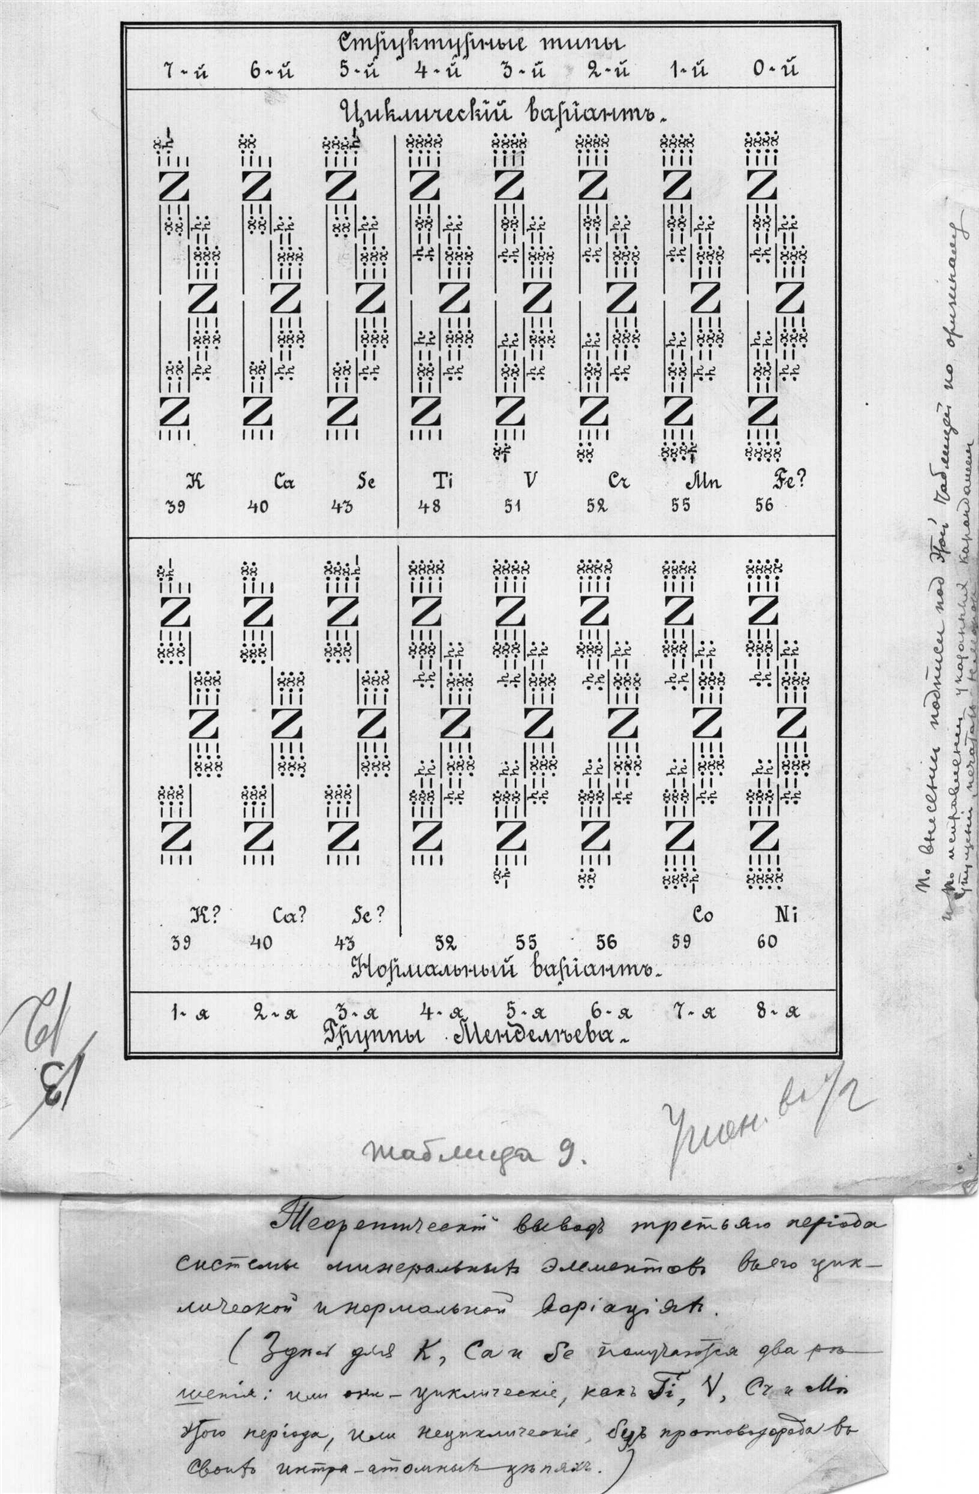 Структурные типы
7-й 6-й 5-й 4-й 3-й 2-й 1-й 0-й
Циклическій варіантъ.
K Ca Se Ti V Cr Mn Fe?
39 40 43 48 51 52 55 56
K? Ca? Se? Co Ni
39 40 43 52 55 56 59 60
Нормальный варіантъ.
1-я 2-я 3-я 4-я 5-я 6-я 7-я 8-я
Группы Менделѣева.
12
13
таблица 9.
Умен. въ 1/2
По внесеніи подписи под этой таблицей по оригиналу
и по исправленіи указанных карандашом
Теоретическій выводъ третьяго періода
системы минеральныхъ элементовъ въ его цик-
лической и нормальной варіаціяхъ.
(Здѣсь для K, Ca и Se получаются два рѣ-
шенія: или они - циклическіе, какъ Ti, V, Cr и Mn
этого періода, или нециклическіе, безъ протоводорода въ
своихъ интра-атомныхъ цѣпяхъ.)